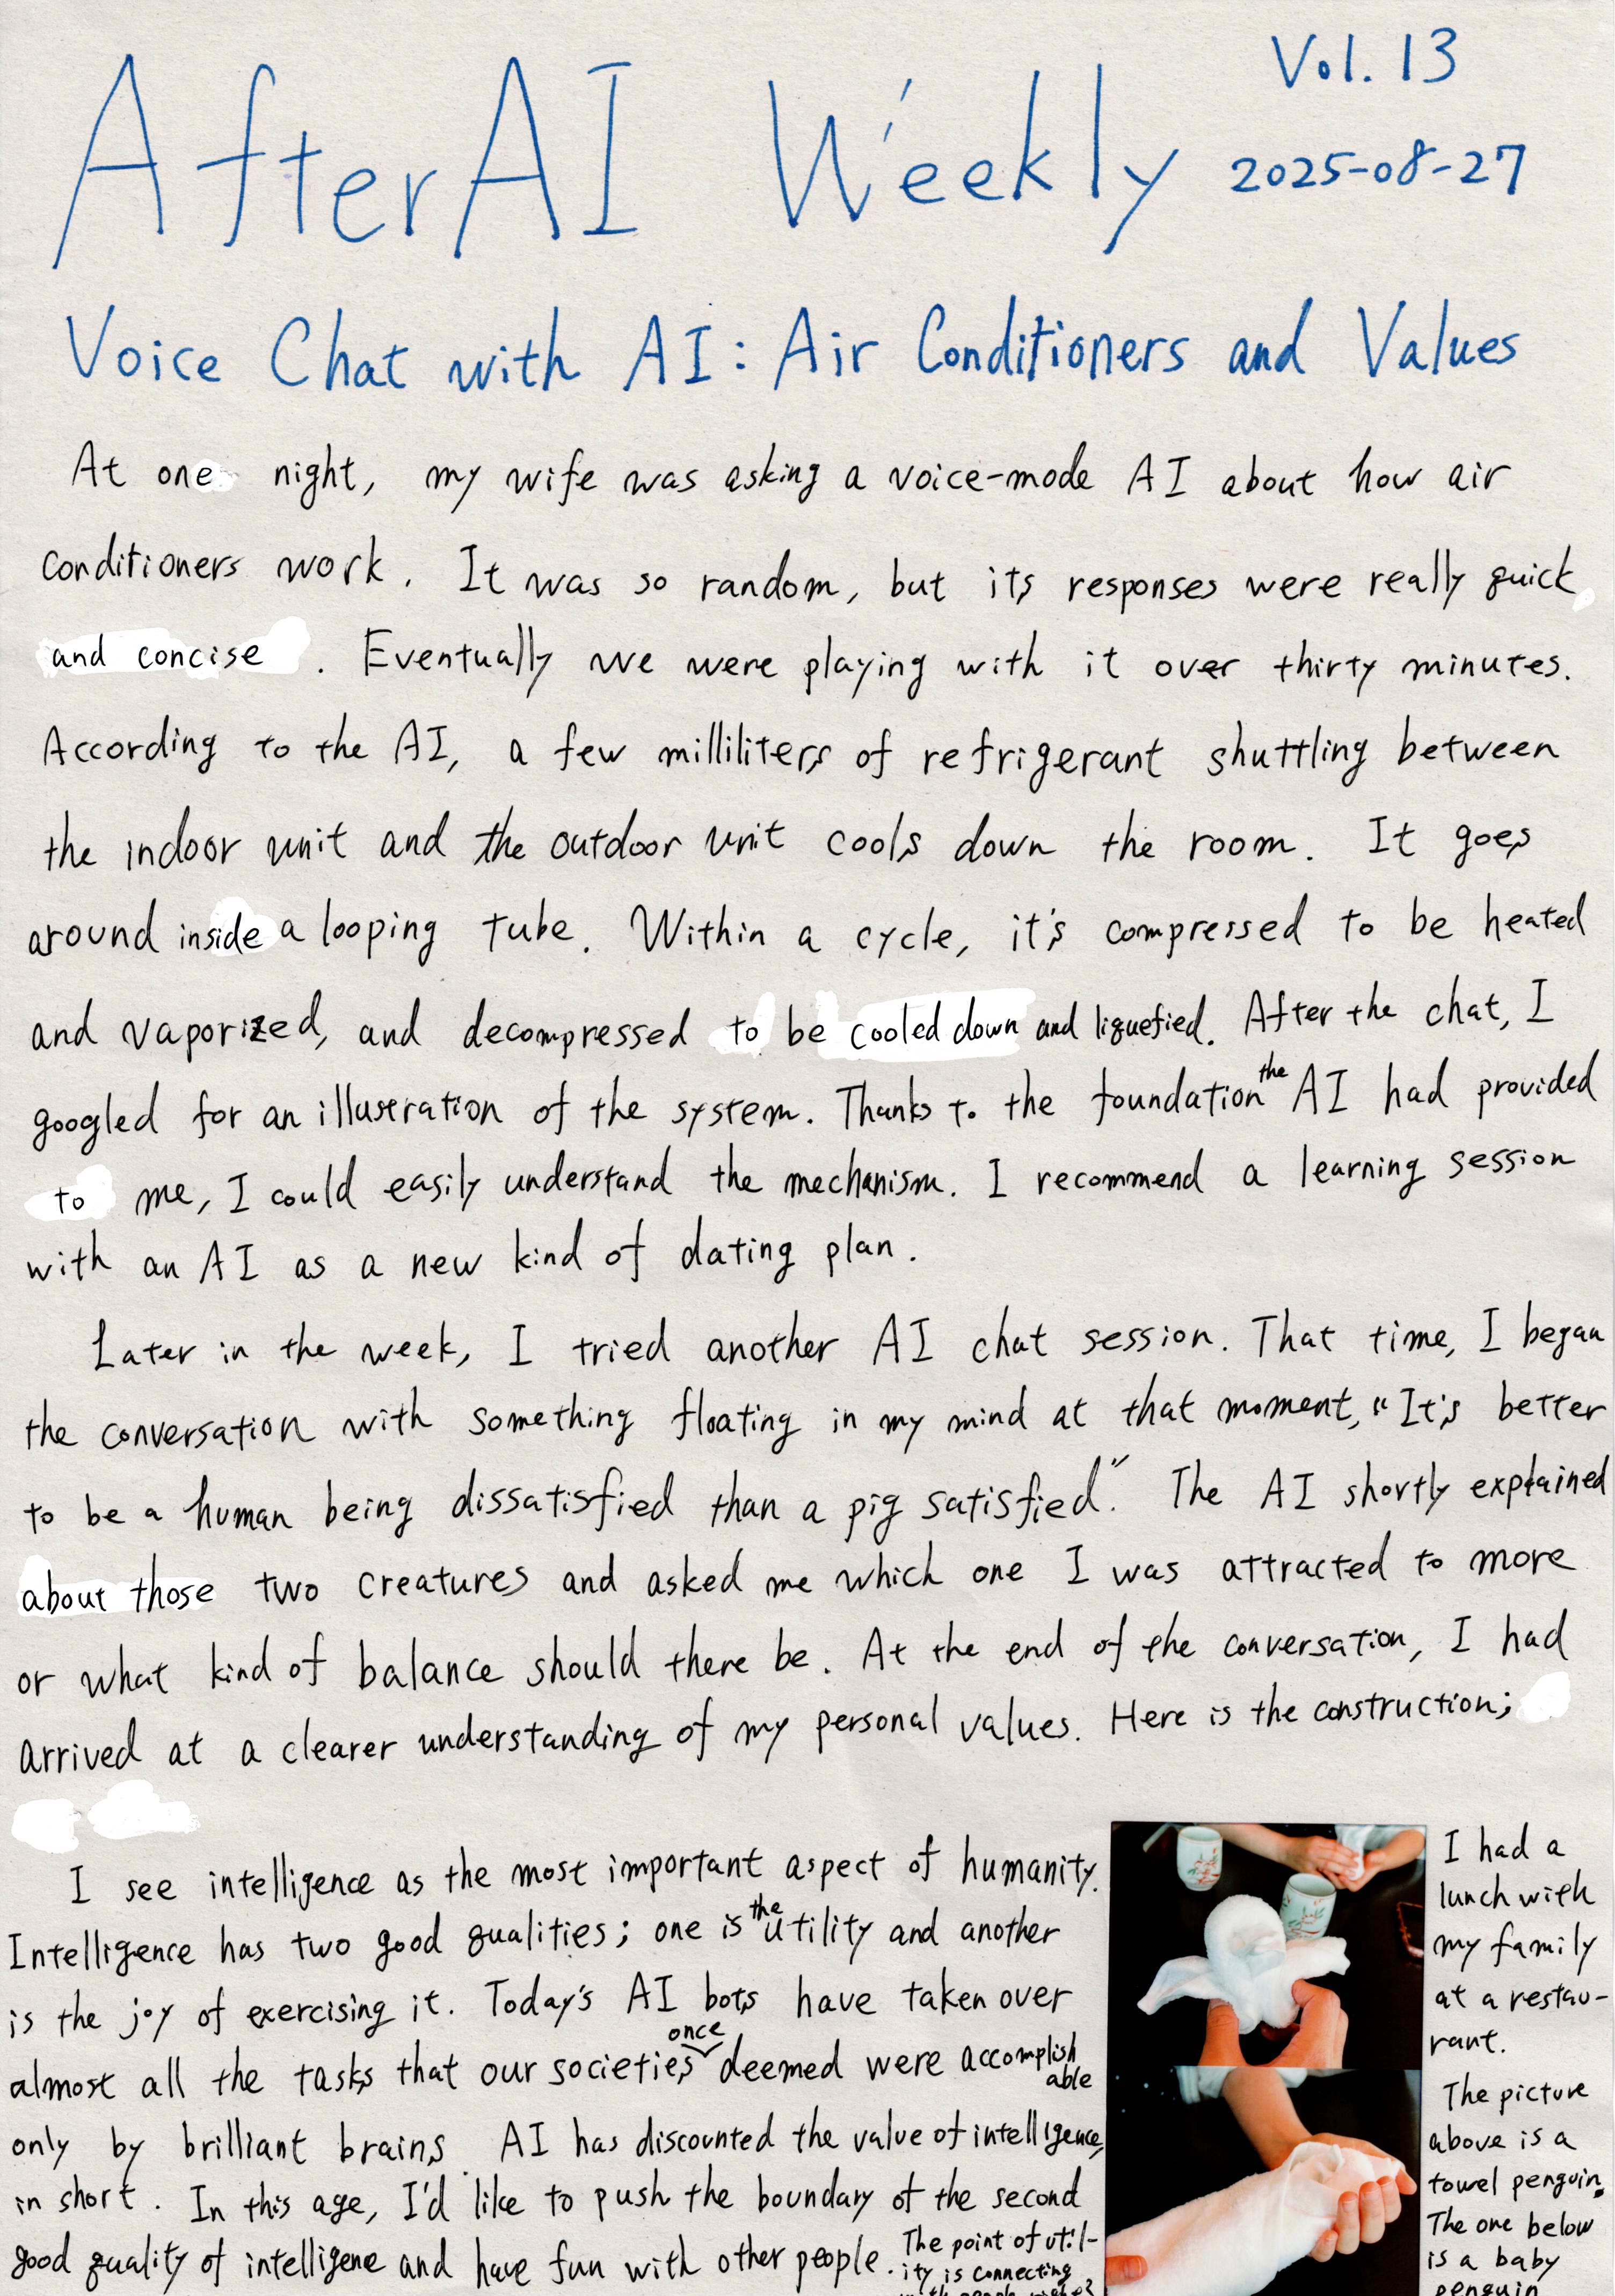 AfterAI Weekly
Vol. 13
2025-08-27
Voice Chat with AI: Air Conditioners and Values
At one night, my wife was asking a voice-mode AI about how air
conditioners work. It was so random, but its responses were really quick
and concise. Eventually we were playing with it over thirty minutes.
According to the AI, a few milliliters of refrigerant shuttling between
the indoor unit and the outdoor unit cools down the room. It goes
around inside a looping tube. Within a cycle, it's compressed to be heated
and vaporized, and decompressed to be cooled down and liquefied. After the chat, I
googled for an illustration of the system. Thanks to the foundation the AI had provided
to me, I could easily understand the mechanism. I recommend a learning session
with an AI as a new kind of dating plan.
Later in the week, I tried another AI chat session. That time, I began
the conversation with something floating in my mind at that moment, "It's better
to be a human being dissatisfied than a pig satisfied." The AI shortly explained
about those two creatures and asked me which one I was attracted to more
or what kind of balance should there be. At the end of the conversation, I had
arrived at a clearer understanding of my personal values. Here is the construction;
I see intelligence as the most important aspect of humanity.
Intelligence has two good qualities; one is the utility and another
is the joy of exercising it. Today's AI bots have taken over
almost all the tasks that our societies once deemed were accomplishable
only by brilliant brains. AI has discounted the value of intelligence,
in short. In this age, I'd like to push the boundary of the second
good quality of intelligene and have fun with other people.
The point of util-
ity is connecting
I had a
lunch with
my family
at a restau-
rant.
The picture
above is a
towel penguin.
The one below
is a baby
penguin